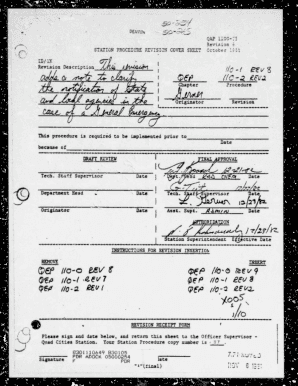 QAP 1100-T1
Revision 6
October 1981
STATION PROCEDURE REVISION COVER SHEET
ID/1R
Revision Description This revision
adds a note to clarify
the notification of State
and local agencies in the
case of a General Emergency
110-1 REV 8
QEP 110-2 REV 2
Chapter Procedure
Originator Revision
This procedure is required to be implemented prior to
Date
because of
DRAFT REVIEW
FINAL APPROVAL
Tech. Staff Supervisor Date
Date
Department Head Date
Tech. Staff Supervisor Date
Originator Date
12/23/82
Asst. Supt. Date
AUTHORIZATION
Station Superintendent Effective Date
INSTRUCTIONS FOR REVISION INSERTION
REMOVE
INSERT
QEP 110-0 REV 8
QEP 110-0 REV 9
QEP 110-1 REV 7
QEP 110-1 REV 8
QEP 110-2 REV 1
QEP 110-2 REV 2
REVISION RECEIPT FORM
Please sign and date below, and return this sheet to the Officer Supervisor -
Quad Cities Station. Your Station Procedure copy number is
8301110649 830105
PDR ADOCK 05000254
F PDR
Signature Date
(final)